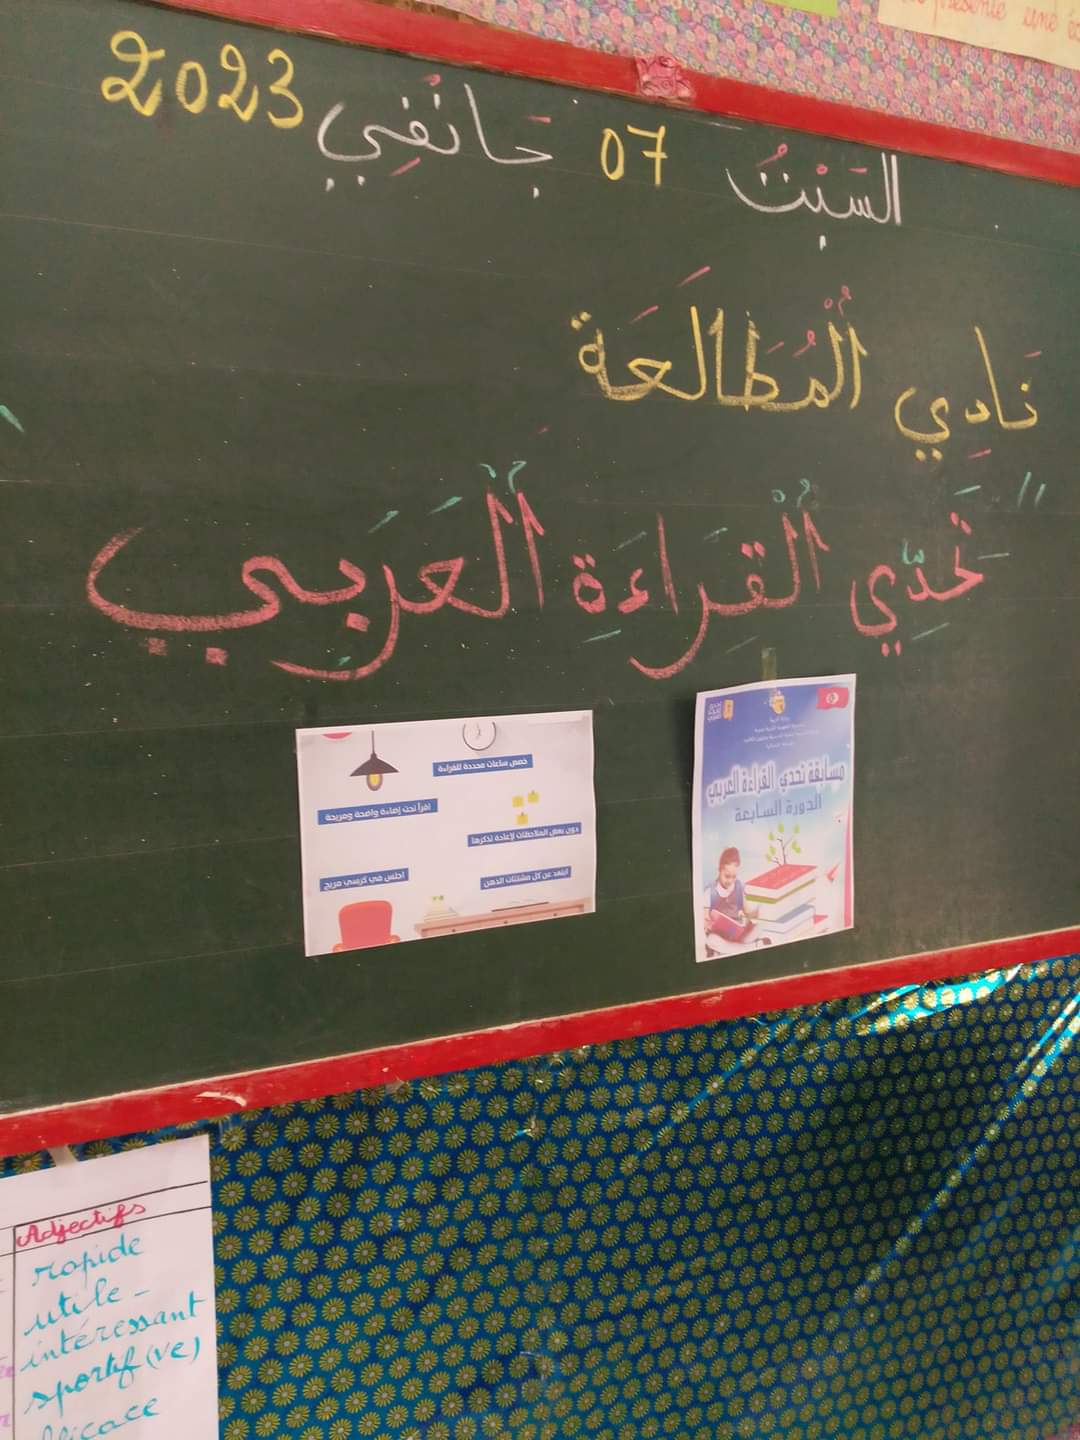 السَبْتُ 07 جَانْفِي 2023
نَادِي اُلْمُطَالَعَة
" تَحَدِّي اُلْقِرَاءَةِ اُلْعَرَبِي
خصص ساعات محددة للقراءة
اقرأ تحت إضاءة واضحة ومريحة
دون بعض الملاحظات لإعادة تذكرها
اجلس في كرسي مريح
ابتعد عن كل مشتتات الذهن
مسابقة تحدي القراءة العربي
الدورة السابعة
Adjectifs
rapide
utile -
intéressant
sportif (ve)
présente une